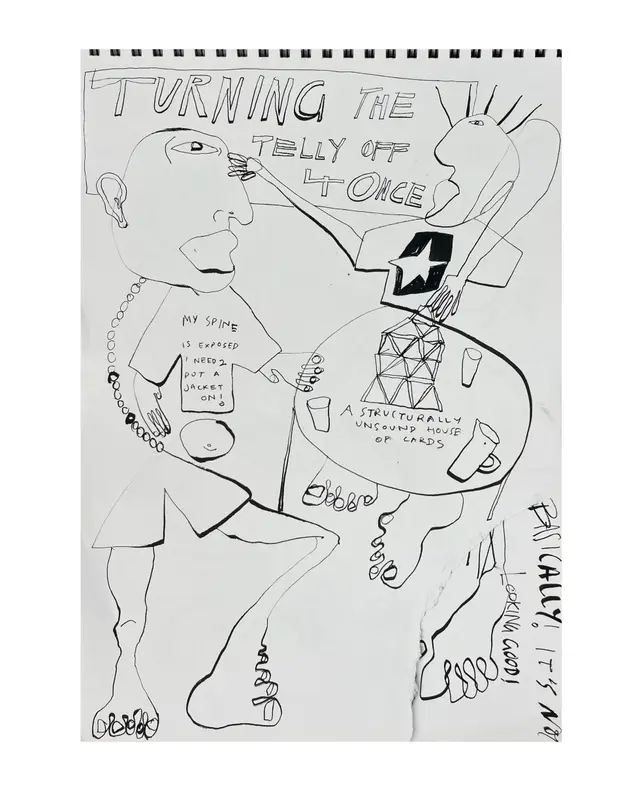 TURNING THE
TELLY OFF
4 ONCE
MY SPINE
IS EXPOSED
I NEED 2
PUT A
JACKET
ON!
A STRUCTURALLY
UNSOUND HOUSE
OF CARDS
BASICALLY! IT'S NOT
LOOKING GOOD!